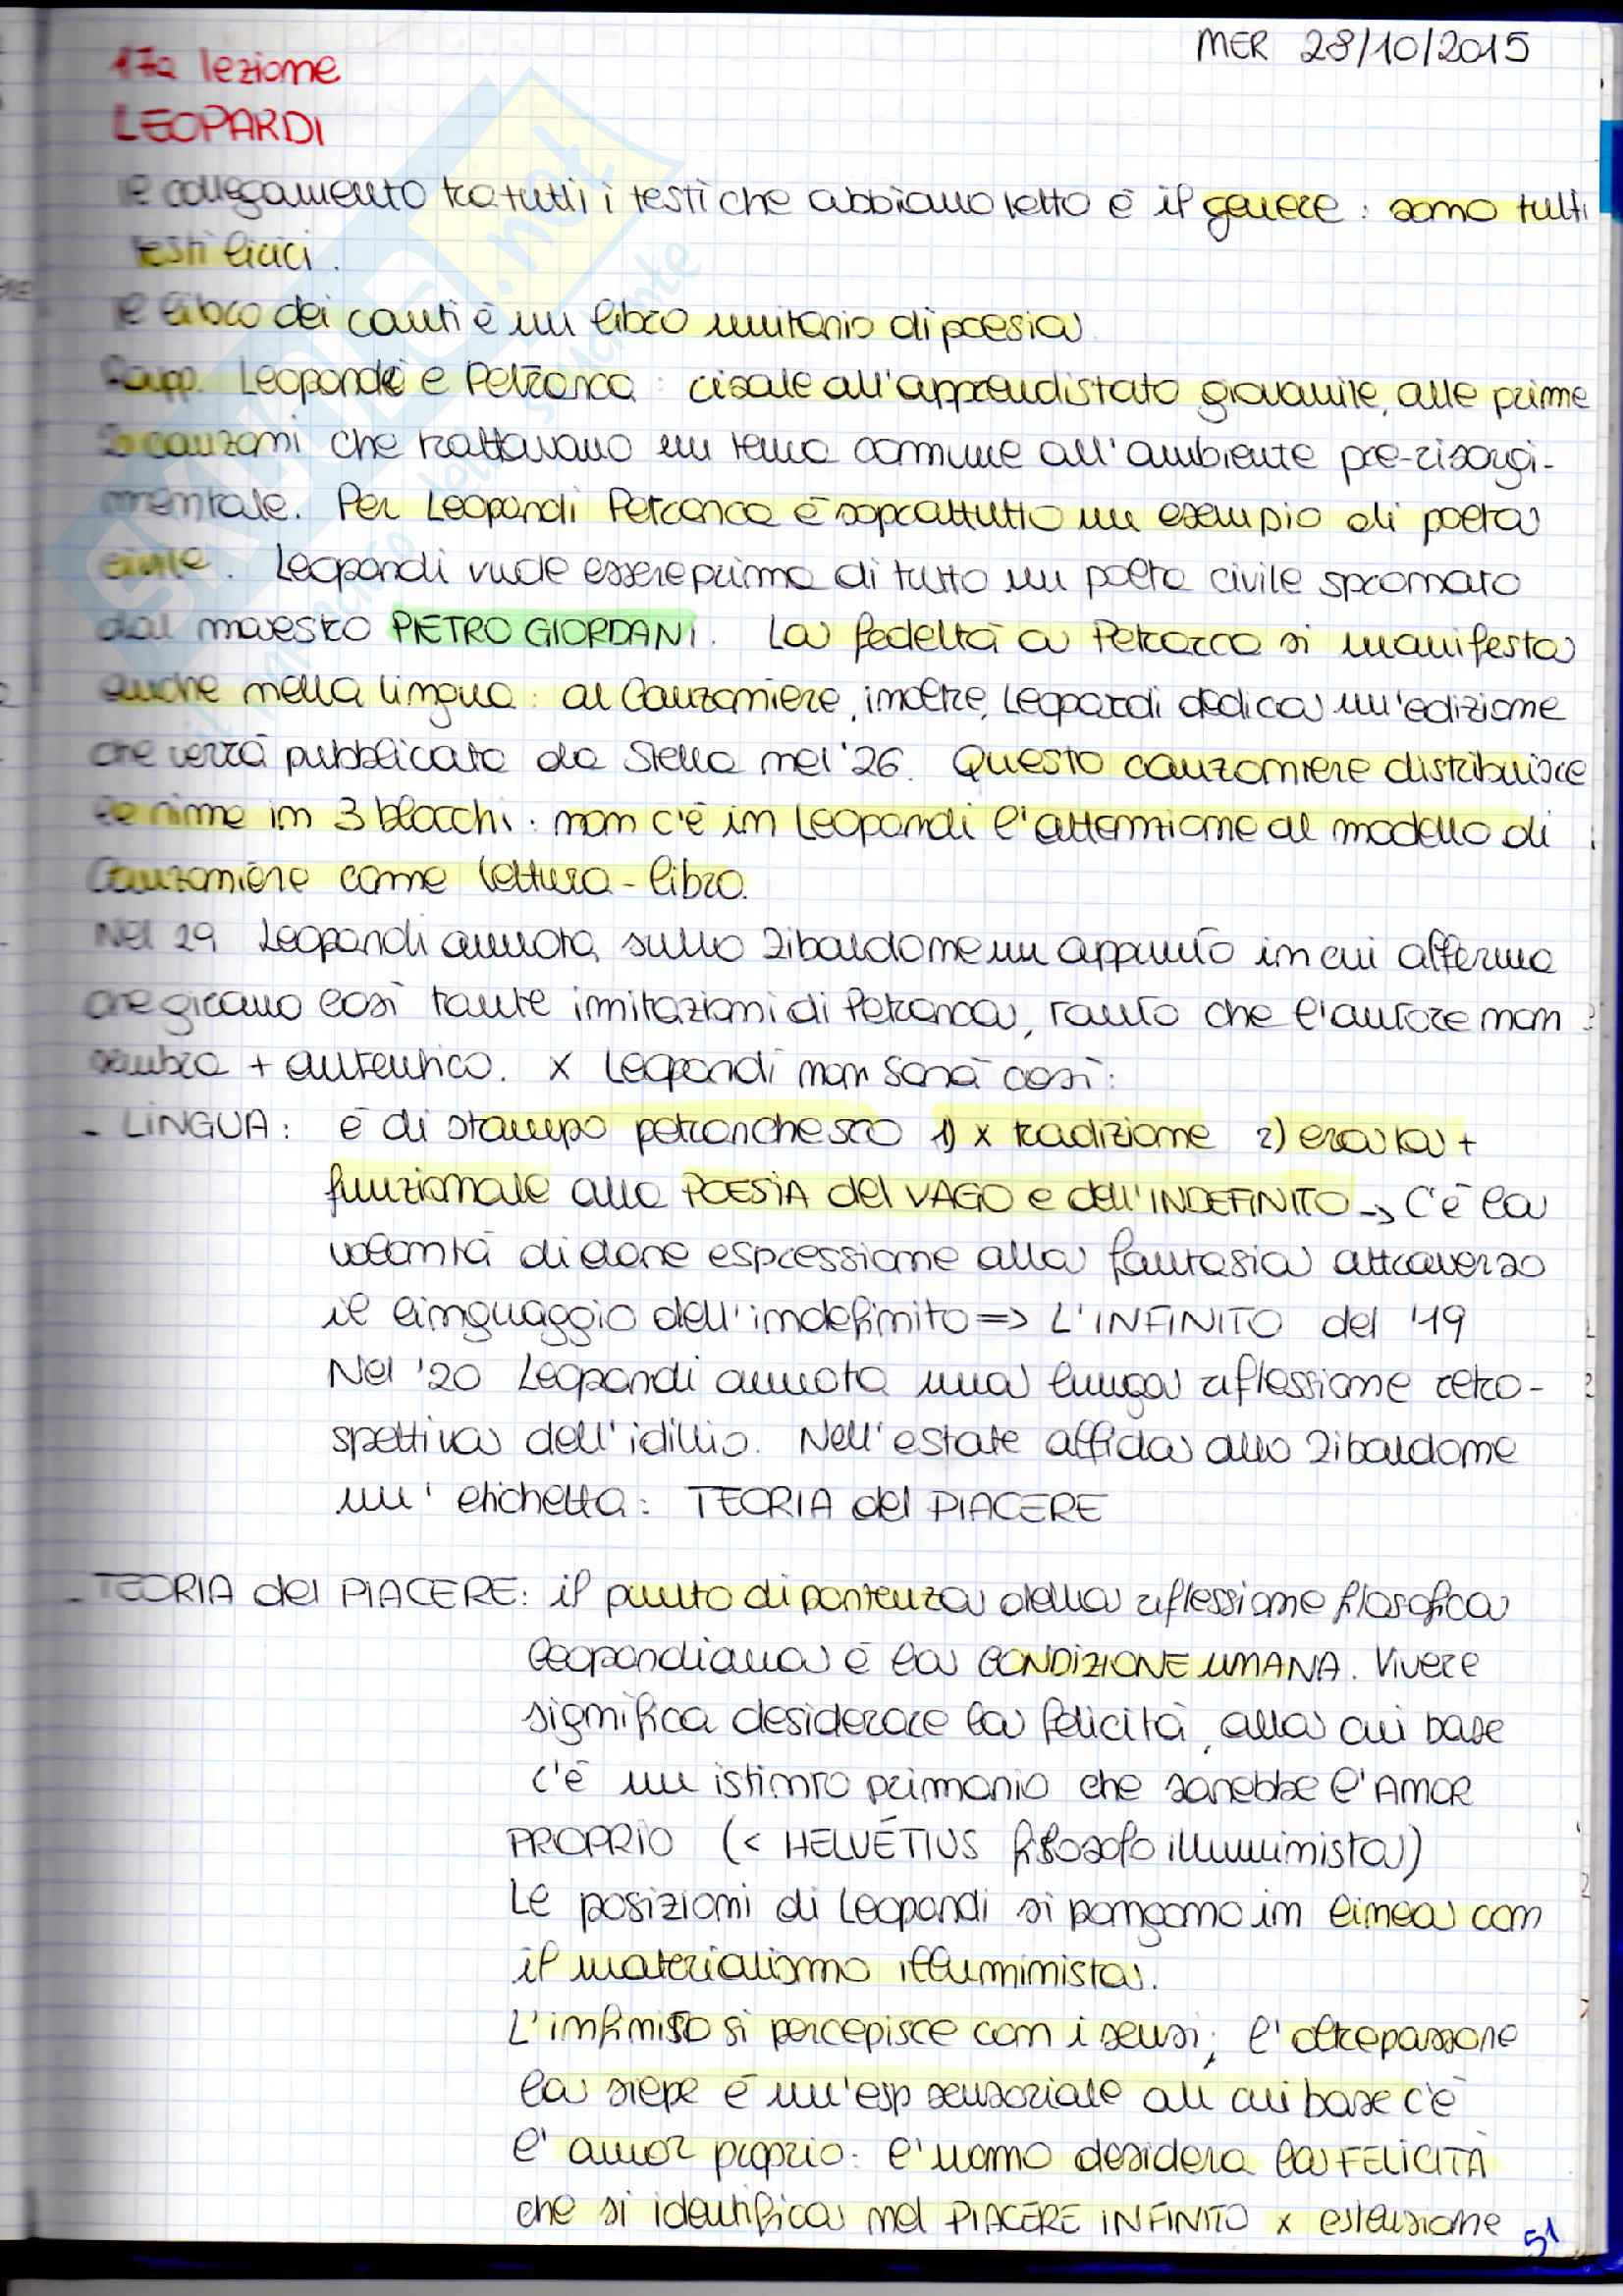 MER 28/10/2015
17a lezione
LEOPARDI
Il collegamento tra tutti i testi che abbiamo letto è il genere: sono tutti
testi lirici.
Il libro dei canti è un libro unitario di poesia
Rapp. Leopardi e Petrarca: risale all'apprendistato giovanile, alle prime
2 canzoni che trattavano un tema comune all'ambiente pre-risorgi-
mentale. Per Leopardi Petrarca è soprattutto un esempio di poeta
civile. Leopardi vuole essere prima di tutto un poeta civile spronato
dal maestro PIETRO GIORDANI. La fedeltà a Petrarca si manifesta
anche nella lingua: al Canzoniere, inoltre, Leopardi dedica un'edizione
che verrà pubblicata da Stella nel '26. Questo canzoniere distribuisce
le rime in 3 blocchi: non c'è in Leopardi l'attenzione al modello di
Canzoniere come lettura-libro.
Nel 29 Leopardi annota sullo Zibaldone un appunto in cui afferma
che girano così tante imitazioni di Petrarca, tanto che l'autore non
sembra + autentico. x Leopardi non sarà così:
- LINGUA: è di stampo petrarchesco 1) x tradizione 2) era la +
funzionale alla POESIA del VAGO e dell'INDEFINITO -> C'è la
volontà di dare espressione alla fantasia attraverso
il linguaggio dell'indefinito => L'INFINITO del '19
Nel '20 Leopardi annota una lunga riflessione retro-
spettiva dell'idillio. Nell'estate affida allo Zibaldone
un' etichetta: TEORIA del PIACERE
- TEORIA del PIACERE: il punto di partenza della riflessione filosofica
leopardiana è la CONDIZIONE UMANA. Vivere
significa desiderare la felicità, alla cui base
c'è un istinto primario che sarebbe l'AMOR
PROPRIO (< HELVÉTIUS filosofo illuminista)
Le posizioni di Leopardi si pongono in linea con
il materialismo illuminista.
L'infinito si percepisce con i sensi; l'oltrepassare
la siepe è un'esp sensoriale all cui base c'è
l' amor proprio: l'uomo desidera la FELICITÀ
che si identifica nel PIACERE INFINITO x estensione
51